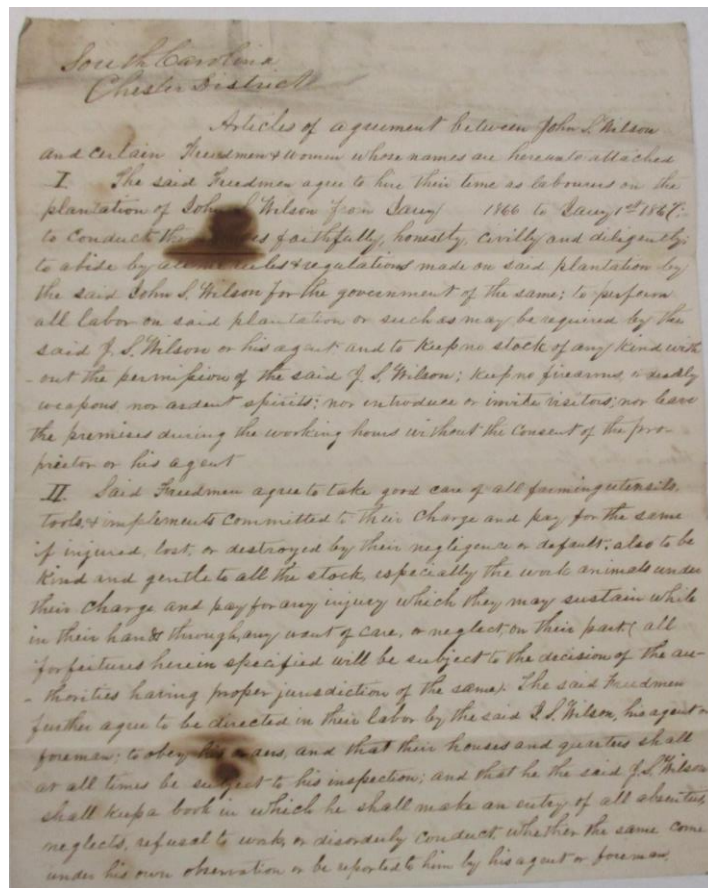 South Carolina
Chester District
Articles of agreement between John S. Wilson
and certain Freedmen & women whose names are hereunto attached
I The said Freedmen agree to hire their time as labourers on the
plantation of John S. Wilson from Jany 1866 to Jany 1st 1867:
to conduct faithfully, honestly, civilly and diligently;
to abide by all rules & regulations made on said plantation by
the said John S. Wilson for the government of the same; to perform
all labor on said plantation or such as may be required by the
said J. S. Wilson or his agent and to keep no stock of any kind with
-out the permission of the said J. S. Wilson; keep no firearms, or deadly
weapons nor ardent spirits; nor introduce or invite visitors; nor leave
the premises during the working hours without the consent of the pro-
prietor or his agent
II Said Freedmen agree to take good care of all farming utensils,
tools, & implements committed to their charge and pay for the same
if injured, lost, or destroyed by their negligence or default. also to be
kind and gentle to all the stock, especially the work animals under
their charge and pay for any injury which they may sustain while
in their hands through any want of care, or neglect, on their part ( all
forfeitures herein specified will be subject to the decision of the au-
-thorities having proper jurisdiction of the same). The said Freedmen
further agree to be directed in their labor by the said J. S. Wilson, his agent or
foreman; to obey his orders, and that their houses and quarters shall
at all times be subject to his inspection; and that he the said J. S. Wilson
shall keep a book in which he shall make an entry of all absentees,
neglects, refusal to work, or disorderly conduct, whether the same come
under his own observation or be reported to him by his agent or foreman.